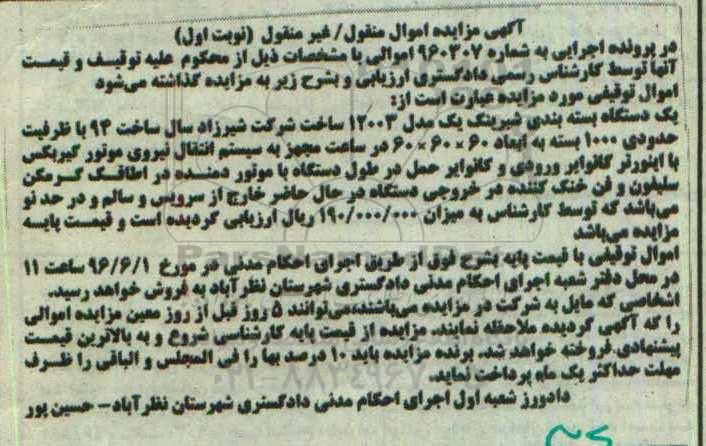 آگهی مزایده اموال منقول/ غیر منقول (نوبت اول)
در پرونده اجرایی به شماره ۹۶۰۳۰۷ اموالی با مشخصات ذیل از محکوم علیه توقیف و قیمت
آنها توسط کارشناس رسمی دادگستری ارزیابی و بشرح زیر به مزایده گذاشته می‌شود
اموال توقیفی مورد مزایده عبارت است از:
یک دستگاه بسته بندی شیرینگ پک مدل ۱۲۰۰۳ ساخت شرکت شیرزاد سال ساخت ۹۴ با ظرفیت
حدودی ۱۰۰۰ بسته به ابعاد ۶۰×۶۰×۶۰ در ساعت مجهز به سیستم انتقال نیروی موتور گیربکس
با اینورتر کانوایر ورودی و کانوایر حمل در طول دستگاه با موتور دمنده در اطاقک گرمکن
سلیفون و فن خنک کننده در خروجی دستگاه در حال حاضر خارج از سرویس و سالم و در حد نو
می‌باشد که توسط کارشناس به میزان ۱۹۰/۰۰۰/۰۰۰ ریال ارزیابی گردیده است و قیمت پایه
مزایده می‌باشد
اموال توقیفی با قیمت پایه بشرح فوق از طریق اجرای احکام مدنی در مورخ ۹۶/۶/۱ ساعت ۱۱
در محل دفتر شعبه اجرای احکام مدنی دادگستری شهرستان نظرآباد به فروش خواهد رسید.
اشخاصی که مایل به شرکت در مزایده می‌باشند،می‌توانند ۵ روز قبل از روز معین مزایده اموالی
را که آگهی گردیده ملاحظه نمایند. مزایده از قیمت پایه کارشناسی شروع و به بالاترین قیمت
پیشنهادی فروخته خواهد شد. برنده مزایده باید ۱۰ درصد بها را فی المجلس و الباقی را ظرف
مهلت حداکثر یک ماه پرداخت نماید.
دادورز شعبه اول اجرای احکام مدنی دادگستری شهرستان نظرآباد– حسین پور
ParsNamadData
۰۲۱-۸۸۳۴۹۶۷۰